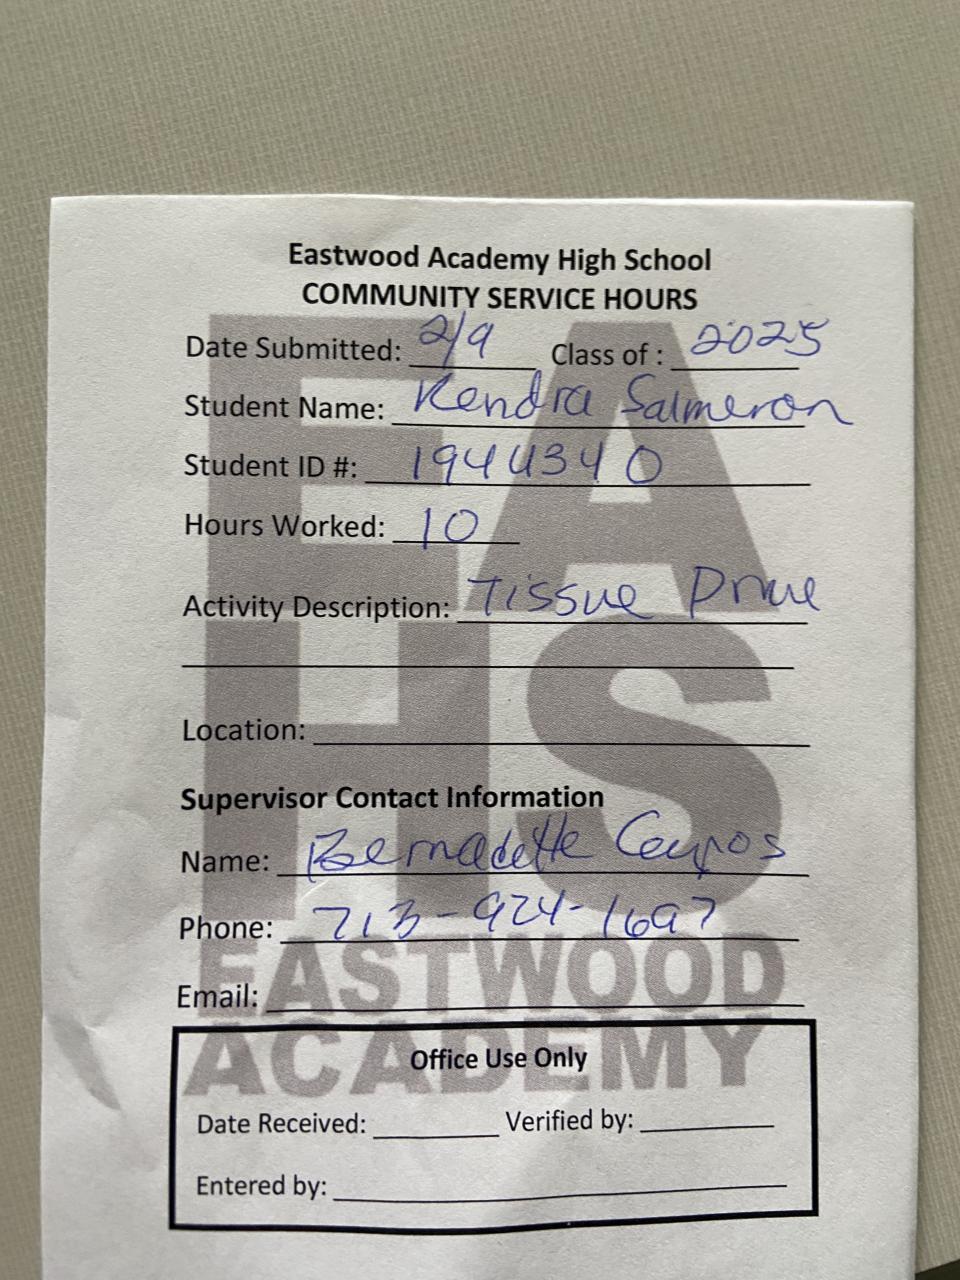 Eastwood Academy High School
COMMUNITY SERVICE HOURS
Date Submitted: 2/9 Class of : 2025
Student Name: Kendra Salmeron
Student ID #: 1944340
Hours Worked: 10
Activity Description: Tissue Drive
Location:
Supervisor Contact Information
Name: Bernadette
Phone: 713-924-1697
Email:
EAHS
EASTWOOD
ACADEMY
Office Use Only
Date Received: Verified by:
Entered by: